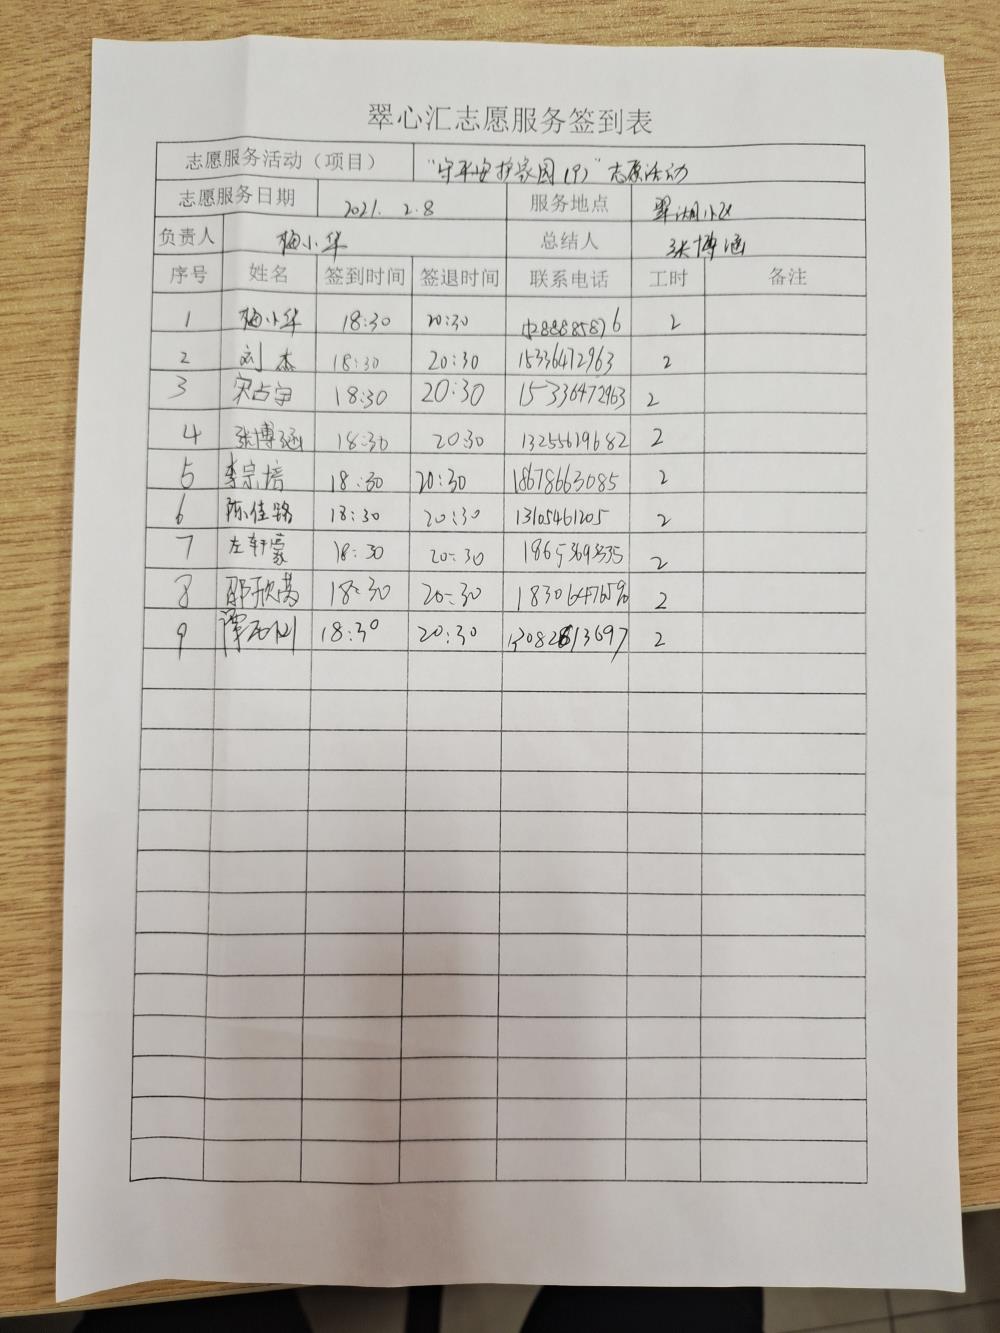 翠心汇志愿服务签到表
志愿服务活动（项目） "守平安护家园(9)"志愿活动
志愿服务日期 2021. 2.8 服务地点 翠湖小区
负责人 梅小华 总结人 张博涵
序号 姓名 签到时间 签退时间 联系电话 工时 备注
1 梅小华 18:30 20:30 2
2 刘杰 18:30 20:30 15336472963 2
3 宋占宇 18:30 20:30 15336472963 2
4 张博涵 18:30 20:30 13255619682 2
5 李宗培 18:30 20:30 18678663085 2
6 陈佳路 18:30 20:30 13105461205 2
7 左轩蒙 18:30 20:30 2
8 18:30 20:30 2
9 18:30 20:30 2